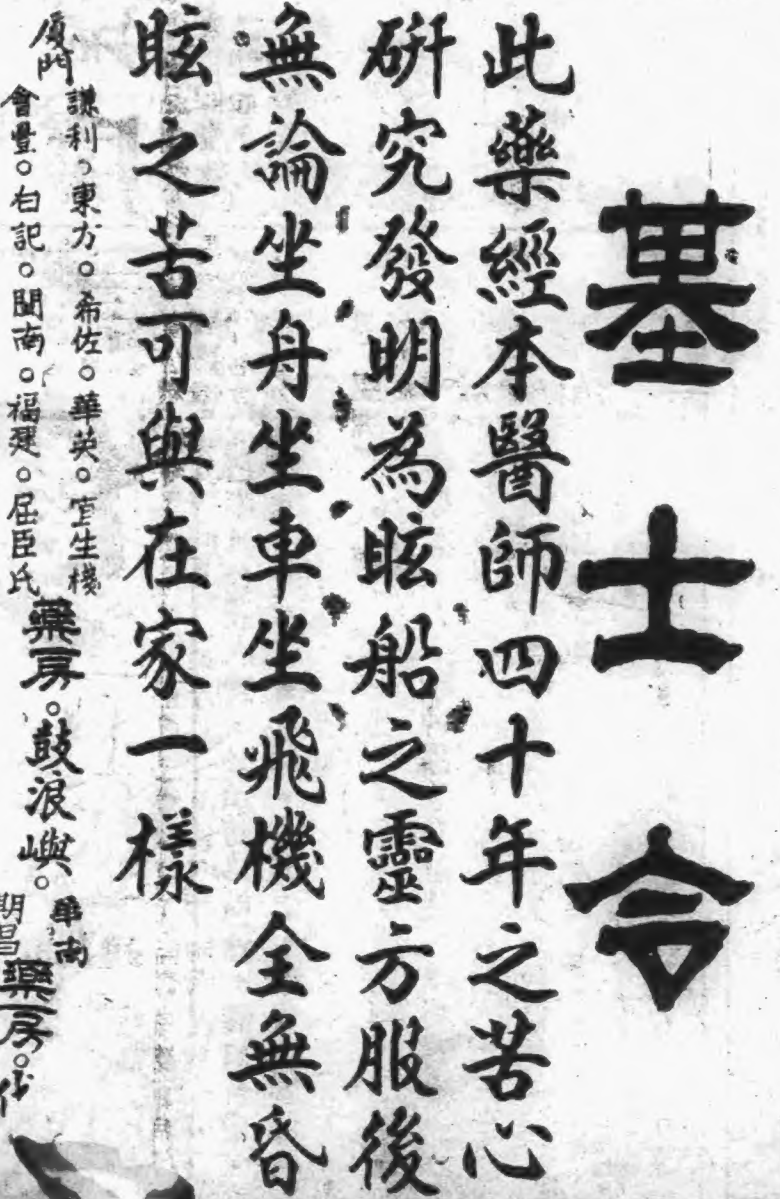 墓士令
此藥經本醫師四十年之苦心
研究發明為眩船之靈方服後
無論坐舟坐車坐飛機全無昏
眩之苦可與在家一樣
厦門
謙利。東方。希佐。華英。宜生棧
會豐。右記。閩南。福建。屈臣氏
藥房。鼓浪嶼。
華南
明昌
藥房。代